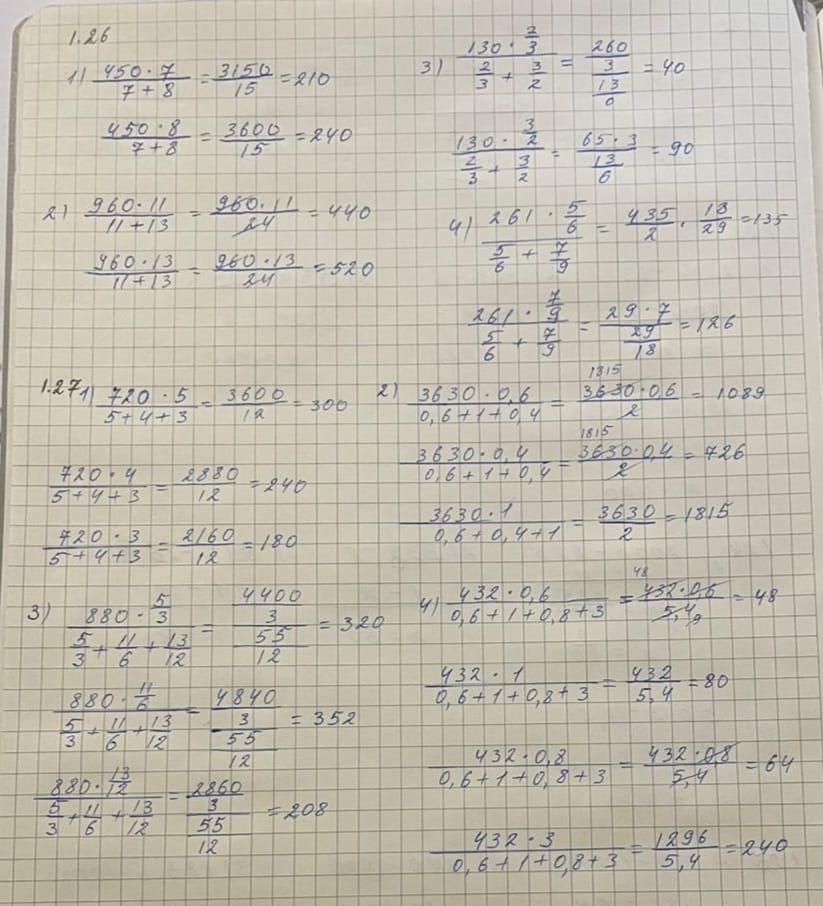 1.26
1) (450 · 7)/(7 + 8) = 3150/15 = 210
(450 · 8)/(7 + 8) = 3600/15 = 240
2) (960 · 11)/(11 + 13) = (960 · 11)/24 = 440
(960 · 13)/(11 + 13) = (960 · 13)/24 = 520
3) (130 · 2/3)/(2/3 + 3/2) = (260/3)/(13/6) = 40
(130 · 3/2)/(2/3 + 3/2) = (65 · 3)/(13/6) = 90
4) (261 · 5/6)/(5/6 + 7/9) = 435/2 · 18/29 = 135
(261 · 7/9)/(5/6 + 7/9) = (29 · 7)/(29/18) = 126
1.27 1) (720 · 5)/(5 + 4 + 3) = 3600/12 = 300
(720 · 4)/(5 + 4 + 3) = 2880/12 = 240
(720 · 3)/(5 + 4 + 3) = 2160/12 = 180
2) (3630 · 0,6)/(0,6 + 1 + 0,4) = 1815 (3630 · 0,6)/2 = 1089
(3630 · 0,4)/(0,6 + 1 + 0,4) = 1815 (3630 · 0,4)/2 = 726
(3630 · 1)/(0,6 + 0,4 + 1) = 3630/2 = 1815
3) (880 · 5/3)/(5/3 + 11/6 + 13/12) = (4400/3)/(55/12) = 320
(880 · 11/6)/(5/3 + 11/6 + 13/12) = (4840/3)/(55/12) = 352
(880 · 13/12)/(5/3 + 11/6 + 13/12) = (2860/3)/(55/12) = 208
4) (432 · 0,6)/(0,6 + 1 + 0,8 + 3) = 48 (432 · 0,6)/5,4 9 = 48
(432 · 1)/(0,6 + 1 + 0,8 + 3) = 432/5,4 = 80
(432 · 0,8)/(0,6 + 1 + 0,8 + 3) = (432 · 0,8)/5,4 = 64
(432 · 3)/(0,6 + 1 + 0,8 + 3) = 1296/5,4 = 240